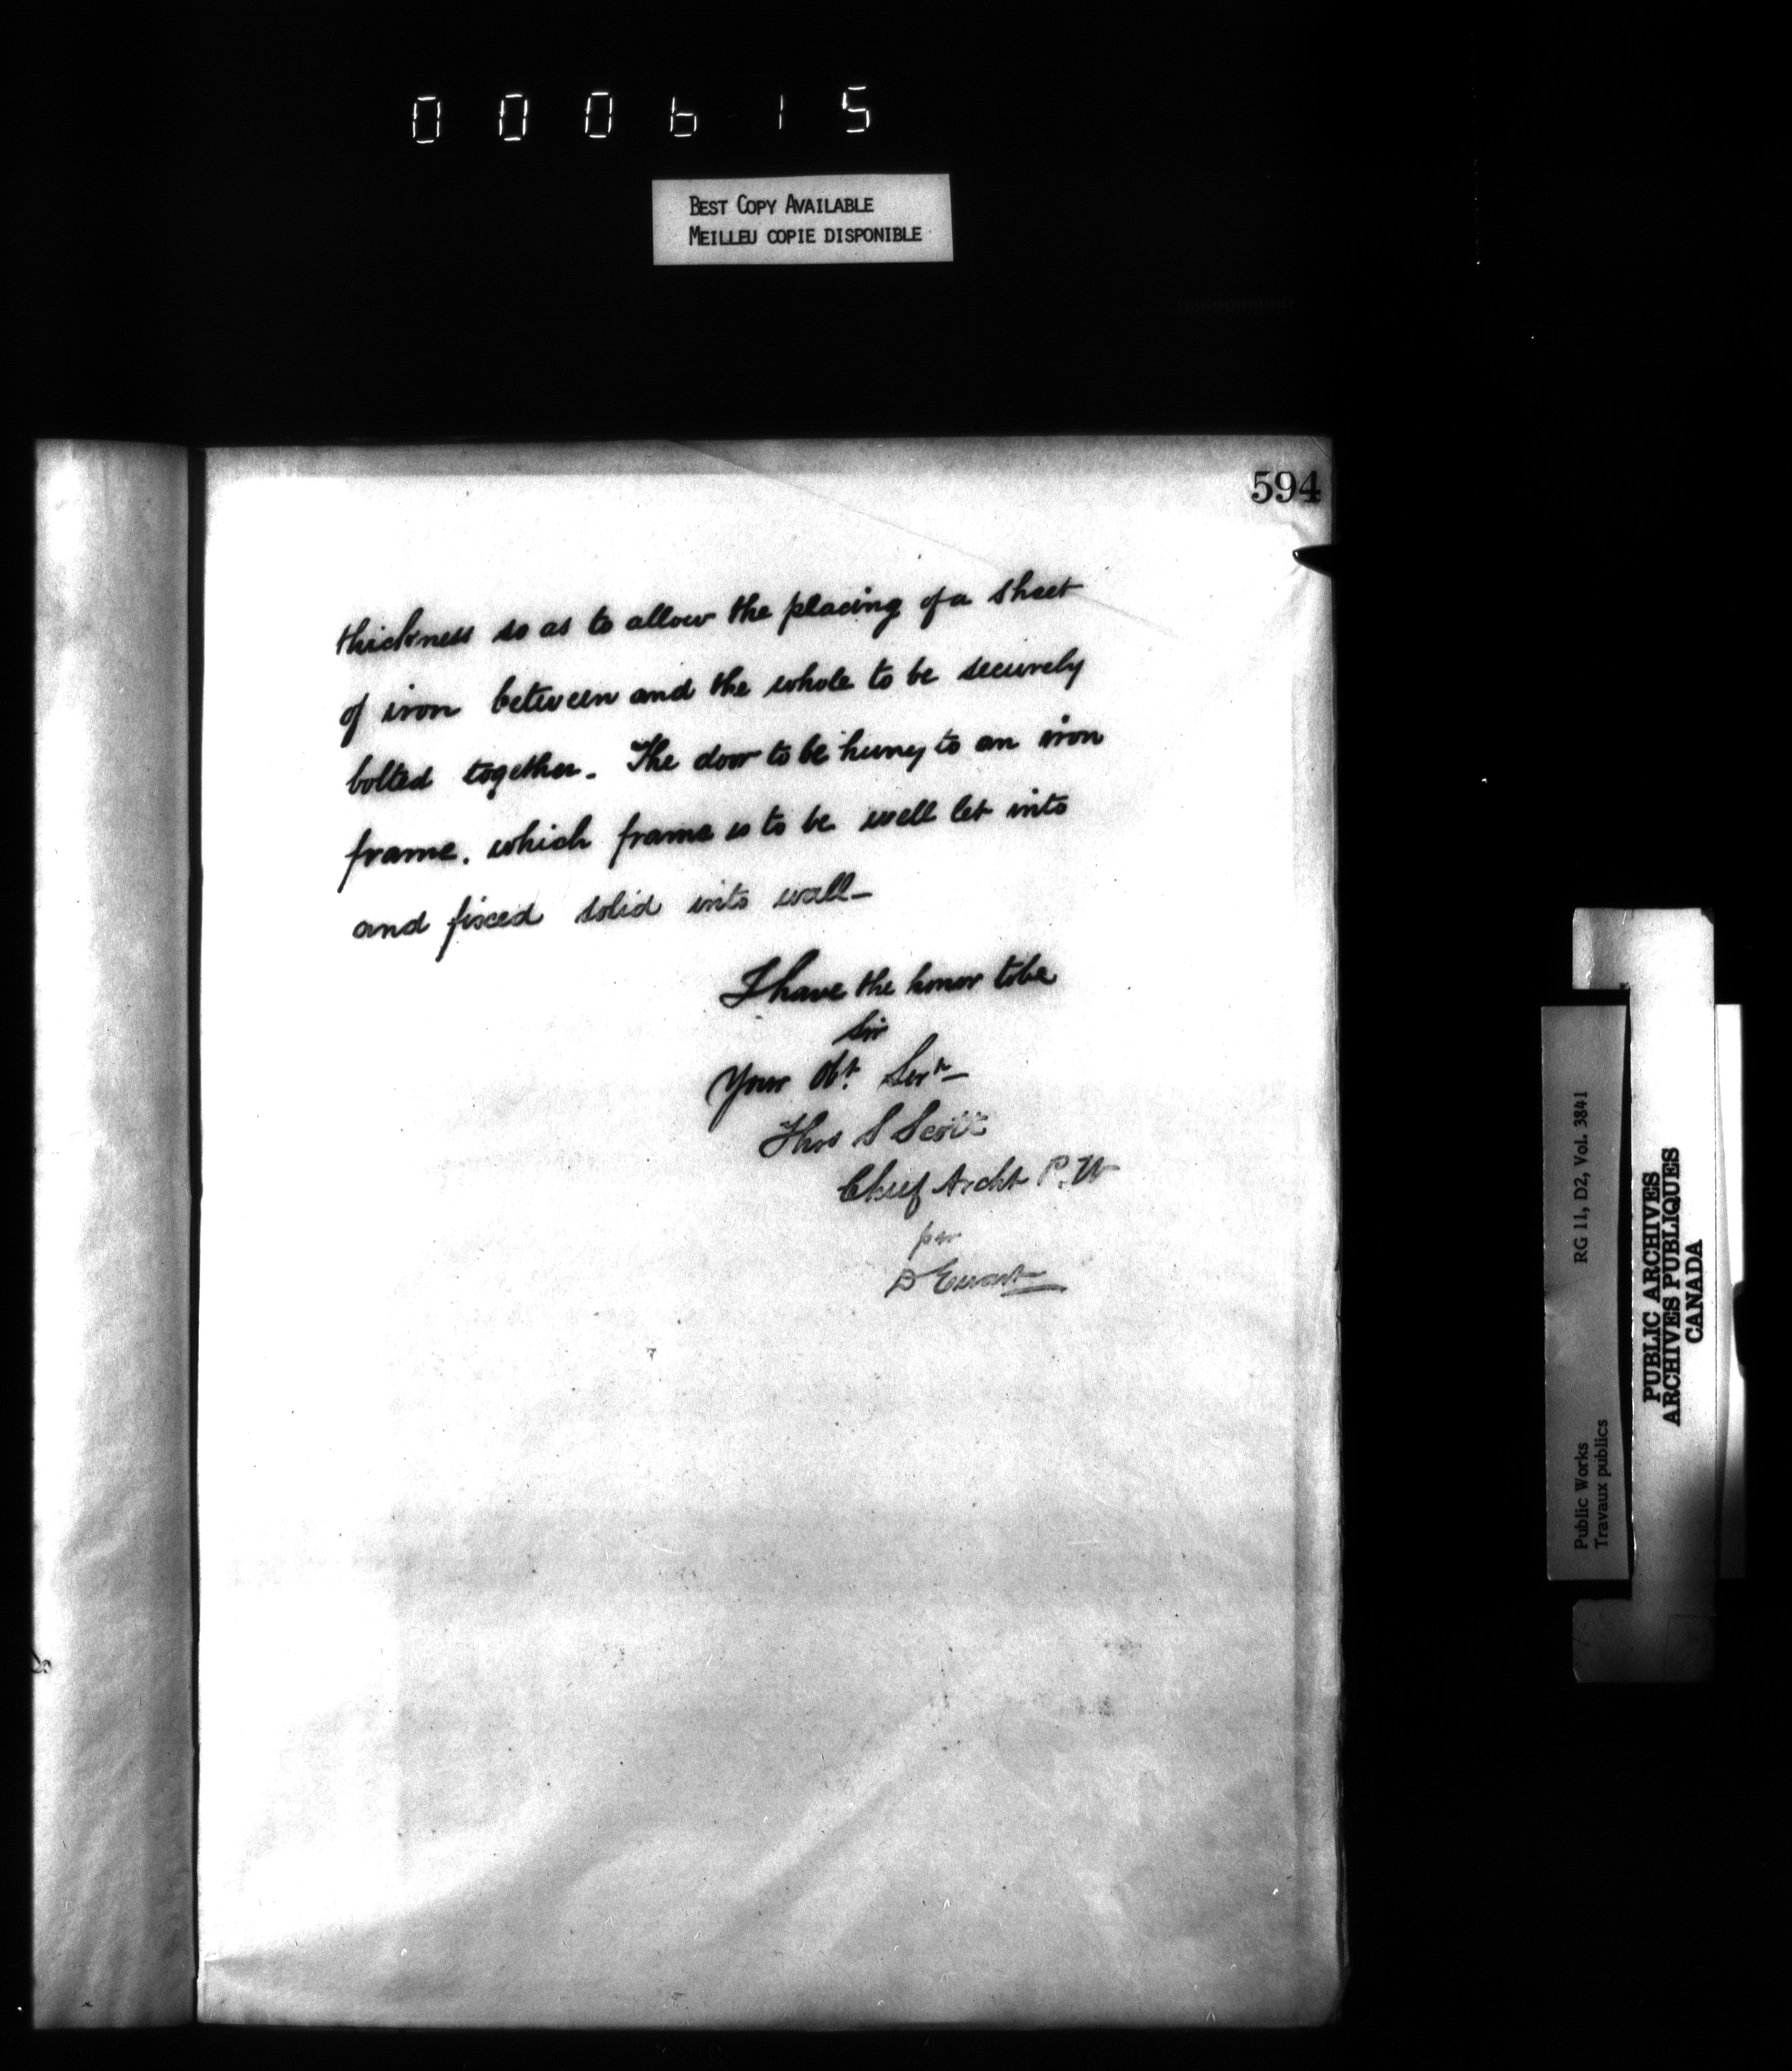 000615
BEST COPY AVAILABLE
MEILLEU COPIE DISPONIBLE
594
thickness so as to allow the placing of a sheet
of iron between and the whole to be securely
bolted together. The door to be hung to an iron
frame. which frame is to be well let into
and fixed solid into wall—
I have the honor to be
Sir
Your Obt. Servt—
Thos S Scott
Chief Archt P.W
per
D Ewart
RG 11, D2, Vol. 3841
Public Works
Travaux publics
PUBLIC ARCHIVES
ARCHIVES PUBLIQUES
CANADA